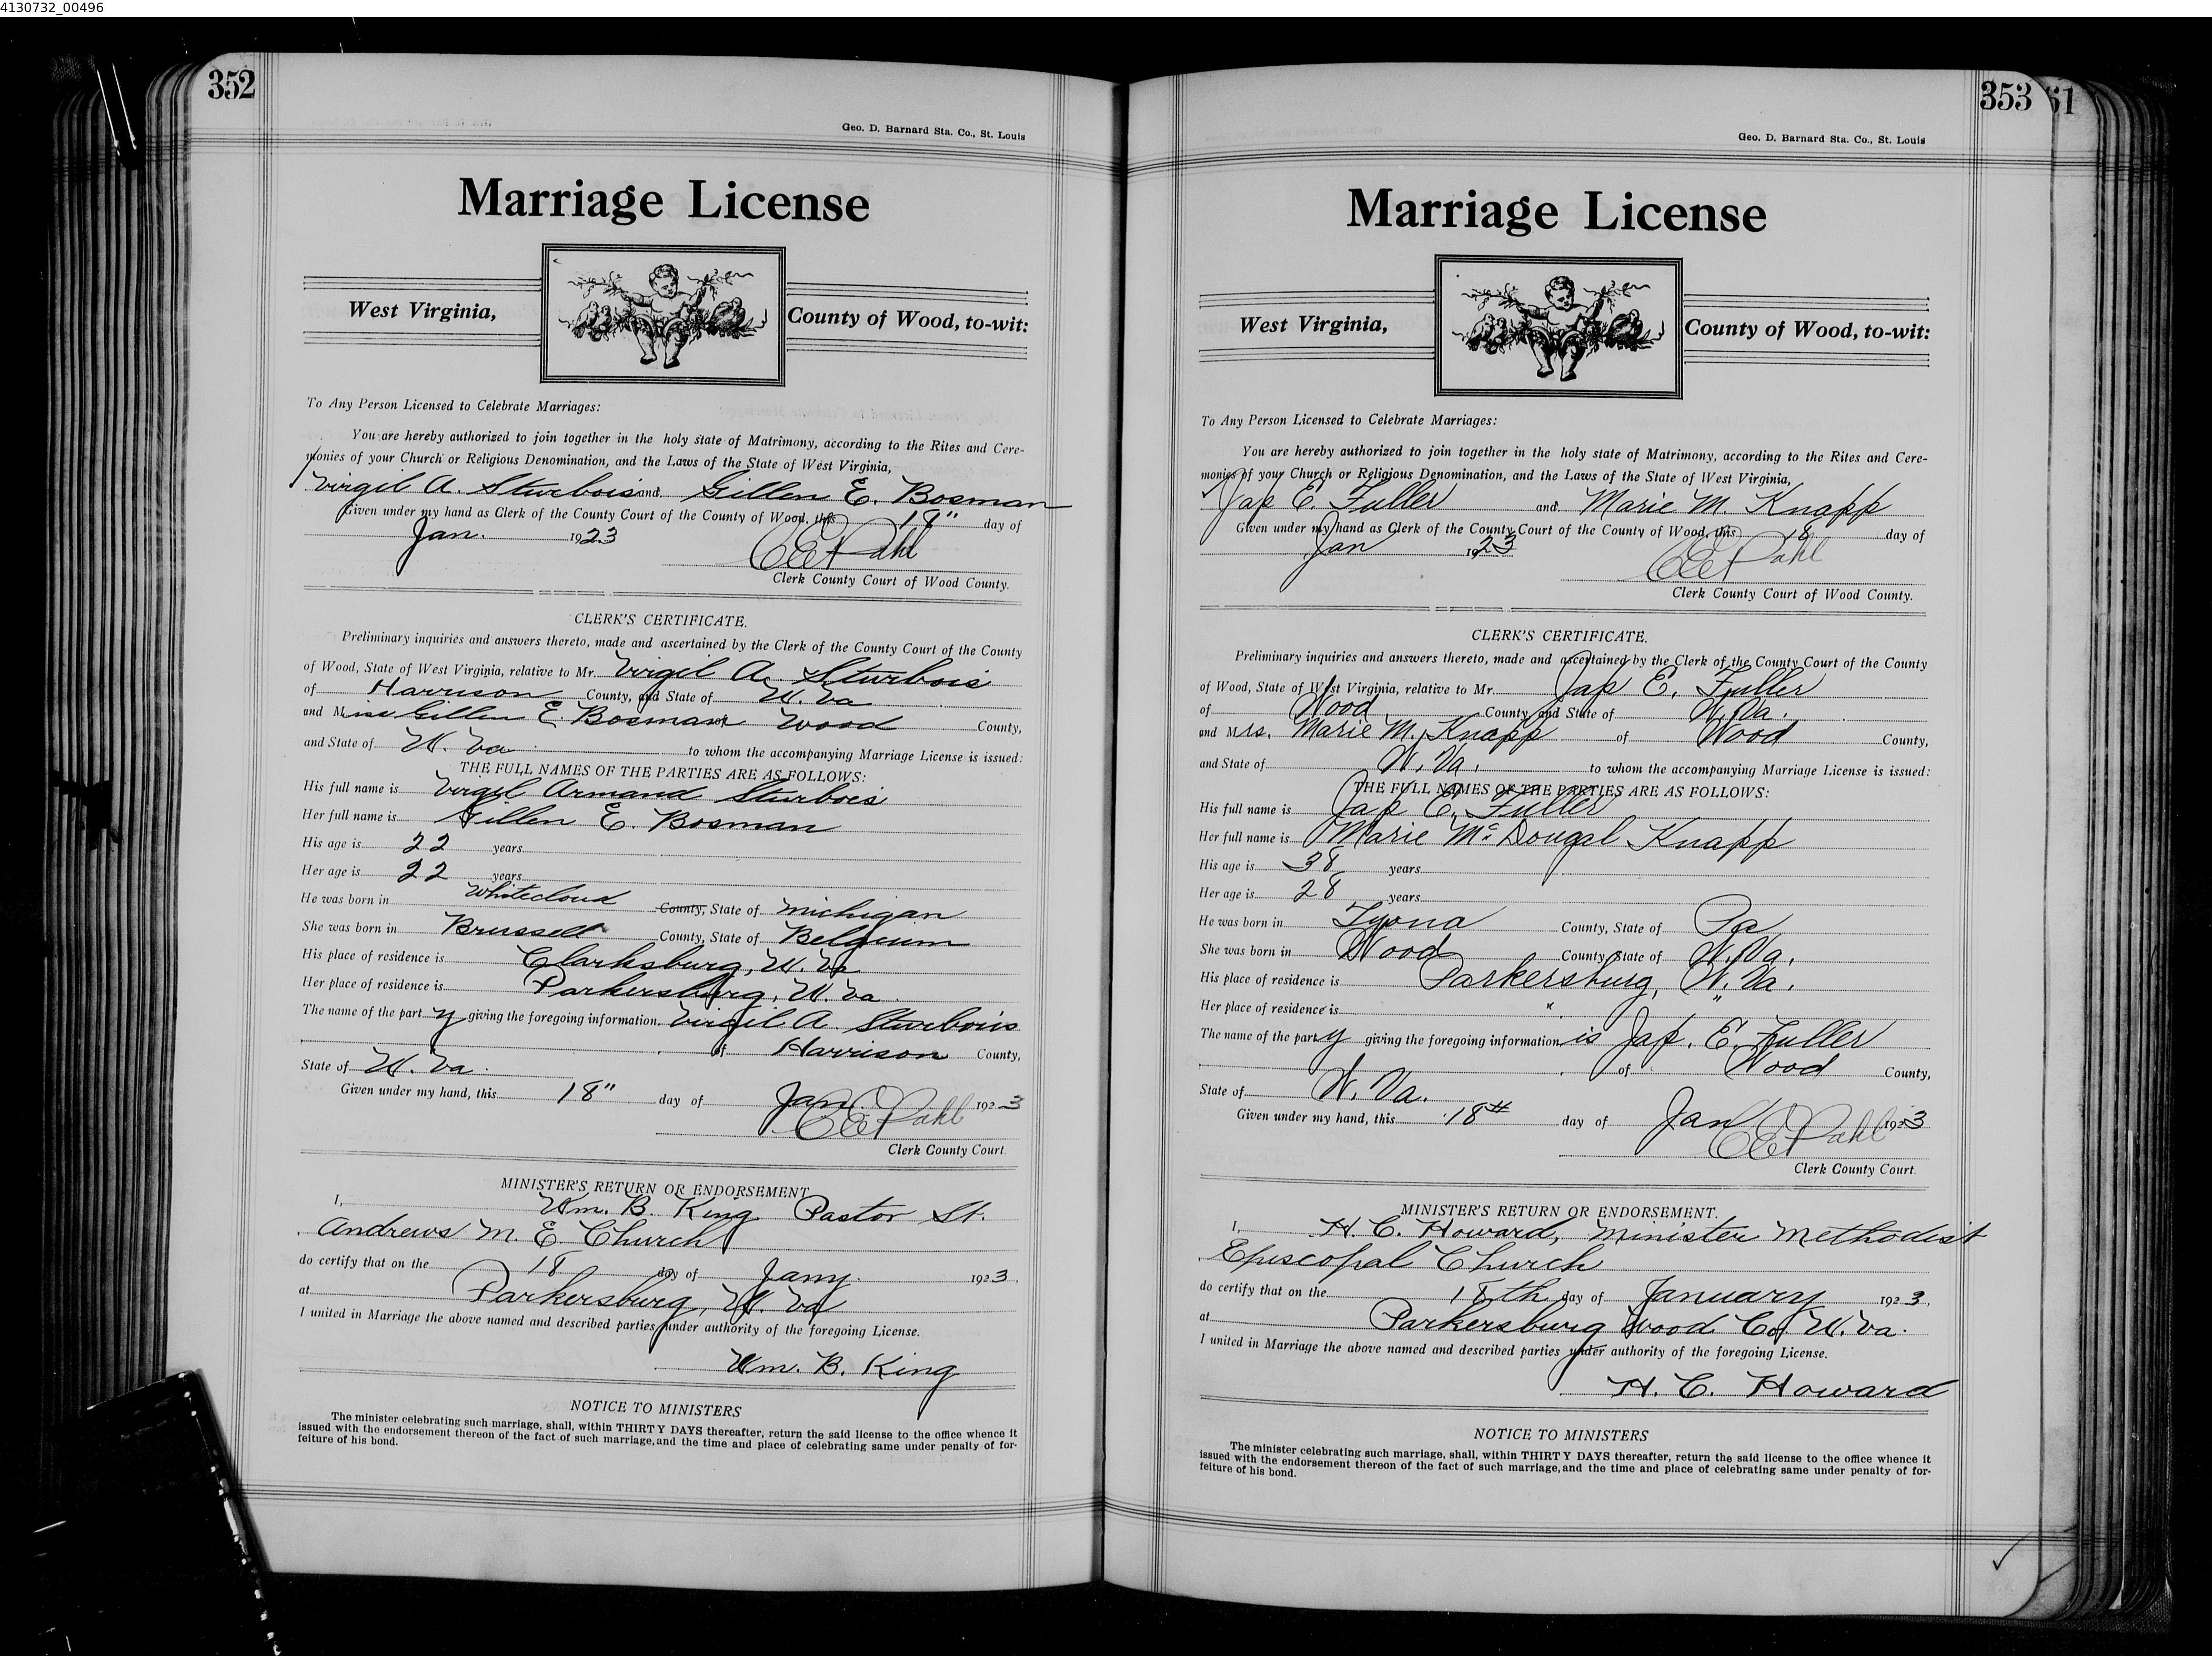 4130732_00496
352
Geo. D. Barnard Sta. Co., St. Louis
Marriage License
West Virginia,
County of Wood, to-wit:
To Any Person Licensed to Celebrate Marriages:
You are hereby authorized to join together in the holy state of Matrimony, according to the Rites and Cere-
monies of your Church or Religious Denomination, and the Laws of the State of West Virginia,
Virgil A. Sturbois and Gillen E. Bosman
Given under my hand as Clerk of the County Court of the County of Wood, this 18" day of
Jan. 1923
CEPahl
Clerk County Court of Wood County.
CLERK'S CERTIFICATE.
Preliminary inquiries and answers thereto, made and ascertained by the Clerk of the County Court of the County
of Wood, State of West Virginia, relative to Mr. Virgil A. Sturbois
of Harrison County, and State of W. Va
and Miss Gillen E. Bosman of Wood County,
and State of W. Va to whom the accompanying Marriage License is issued:
THE FULL NAMES OF THE PARTIES ARE AS FOLLOWS:
His full name is Virgil Armand Sturbois
Her full name is Gillen E. Bosman
His age is 22 years
Her age is 22 years
He was born in Whitecloud County, State of Michigan
She was born in Brussell County, State of Belgium
His place of residence is Clarksburg, W. Va
Her place of residence is Parkersburg, W. Va.
The name of the party giving the foregoing information. Virgil A Sturbois
of Harrison County,
State of W. Va.
Given under my hand, this 18" day of Jan. 1923
CEPahl
Clerk County Court.
MINISTER'S RETURN OR ENDORSEMENT
I, Wm. B. King Pastor St.
Andrews M. E. Church
do certify that on the 18 day of Jany. 1923.
at Parkersburg, W. Va
I united in Marriage the above named and described parties under authority of the foregoing License.
Wm. B. King
NOTICE TO MINISTERS
The minister celebrating such marriage, shall, within THIRTY DAYS thereafter, return the said license to the office whence it
issued with the endorsement thereon of the fact of such marriage, and the time and place of celebrating same under penalty of for-
feiture of his bond.
353 61
Geo. D. Barnard Sta. Co., St. Louis
Marriage License
West Virginia,
County of Wood, to-wit:
To Any Person Licensed to Celebrate Marriages:
You are hereby authorized to join together in the holy state of Matrimony, according to the Rites and Cere-
monies of your Church or Religious Denomination, and the Laws of the State of West Virginia,
Jap E. Fuller and Marie M. Knapp
Given under my hand as Clerk of the County Court of the County of Wood, this 18 day of
Jan 1923
CEPahl
Clerk County Court of Wood County.
CLERK'S CERTIFICATE.
Preliminary inquiries and answers thereto, made and ascertained by the Clerk of the County Court of the County
of Wood, State of West Virginia, relative to Mr. Jap E. Fuller
of Wood County, and State of W. Va.
and Mrs. Marie M. Knapp of Wood County,
and State of W. Va. to whom the accompanying Marriage License is issued:
THE FULL NAMES OF THE PARTIES ARE AS FOLLOWS:
His full name is Jap E. Fuller
Her full name is Marie Mc Dougal Knapp
His age is 38 years
Her age is 28 years
He was born in Tyona County, State of Pa
She was born in Wood County State of W. Va.
His place of residence is Parkersburg, W. Va.
Her place of residence is " "
The name of the party giving the foregoing information is Jap. E. Fuller
of Wood County,
State of W. Va.
Given under my hand, this 18th day of Jan 1923
CEPahl
Clerk County Court.
MINISTER'S RETURN OR ENDORSEMENT.
I, H. C. Howard, Minister Methodist
Episcopal Church
do certify that on the 18th day of January 1923.
at Parkersburg Wood Co W. Va.
I united in Marriage the above named and described parties under authority of the foregoing License.
H. C. Howard
NOTICE TO MINISTERS
The minister celebrating such marriage, shall, within THIRTY DAYS thereafter, return the said license to the office whence it
issued with the endorsement thereon of the fact of such marriage, and the time and place of celebrating same under penalty of for-
feiture of his bond.